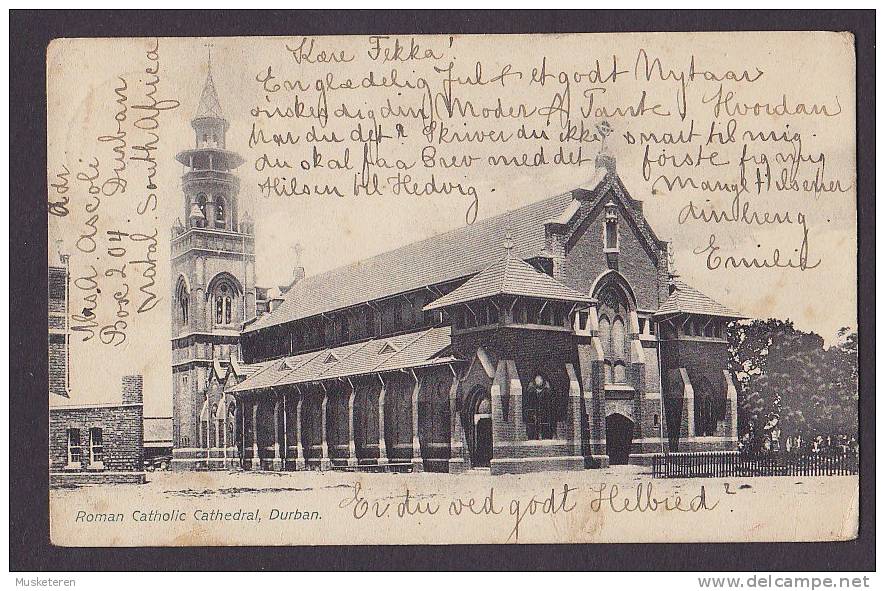 Kære Fekka!
En glædelig Jul & et godt Nytaar
önskes dig din Moder & Tante. Hvordan
har du det? Skriver du ikke snart til mig.
du skal faa Brev med det förste fig mig
Hilsen til Hedvig. Mange Hilsener
din heng.
Emilie
Adr
Mrs A. Ascoli
Box 204. Durban
Natal. South Africa
Er du ved godt Helbred?
Roman Catholic Cathedral, Durban.
Musketeren
www.delcampe.net